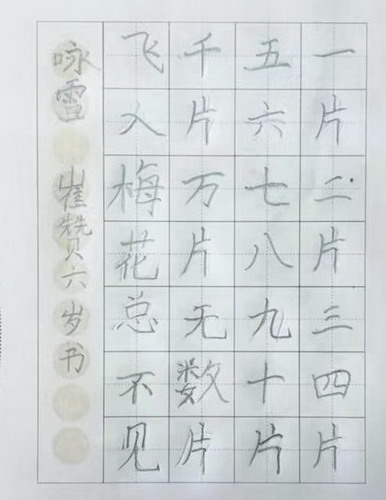 一片二片三四片
五六七八九十片
千片万片无数片
飞入梅花总不见
咏雪 崔赞六岁书